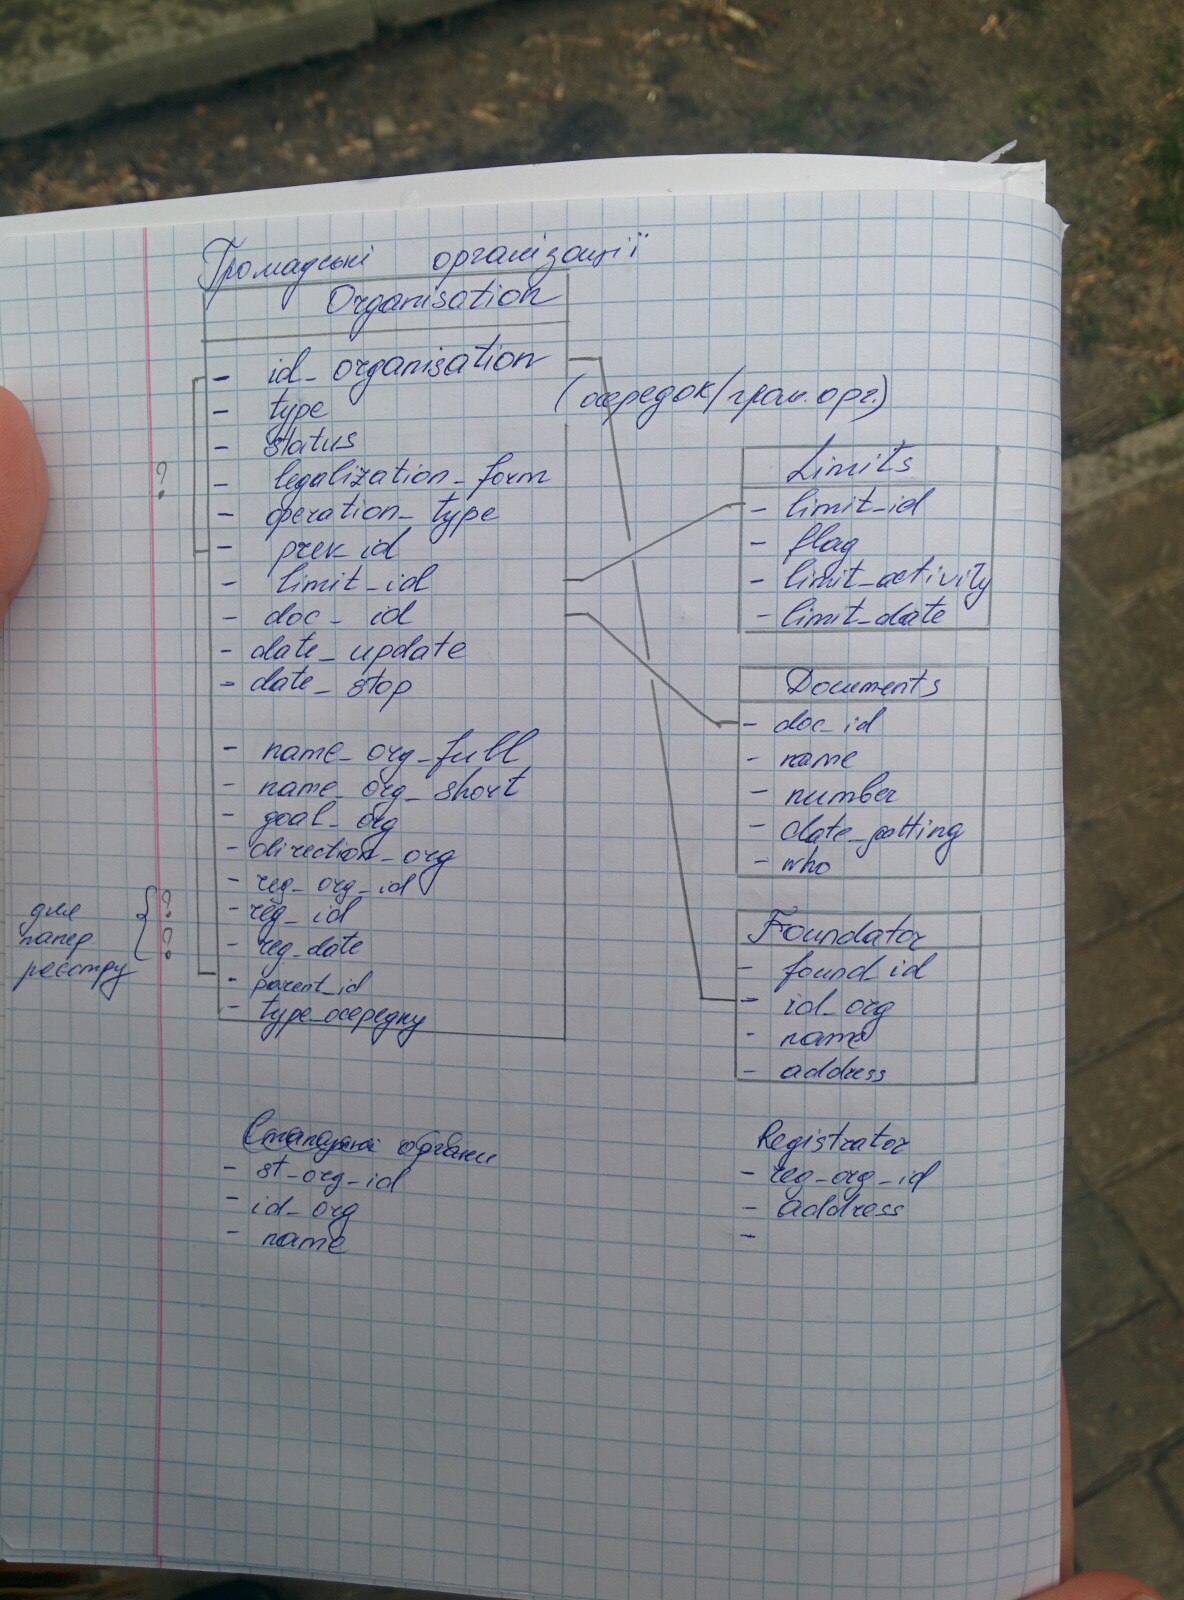 Громадські організації
Organisation
- id_organisation
- type
(осередок/гром. орг.)
- status
- legalization_form
?
- operation_type
- prev_id
- limit_id
- doc_id
- date_update
- date_stop
- name_org_full
- name_org_short
- goal_org
- direction_org
- reg_org_id
- reg_id
- reg_date
- parent_id
- type_осередку
для
папер
реєстру
?
?
Limits
- limit_id
- flag
- limit_activity
- limit_date
Documents
- doc_id
- name
- number
- date_
- who
Foundator
- found_id
- id_org
- name
- address
- st_org_id
- id_org
- name
Registrator
- reg_org_id
- address
-